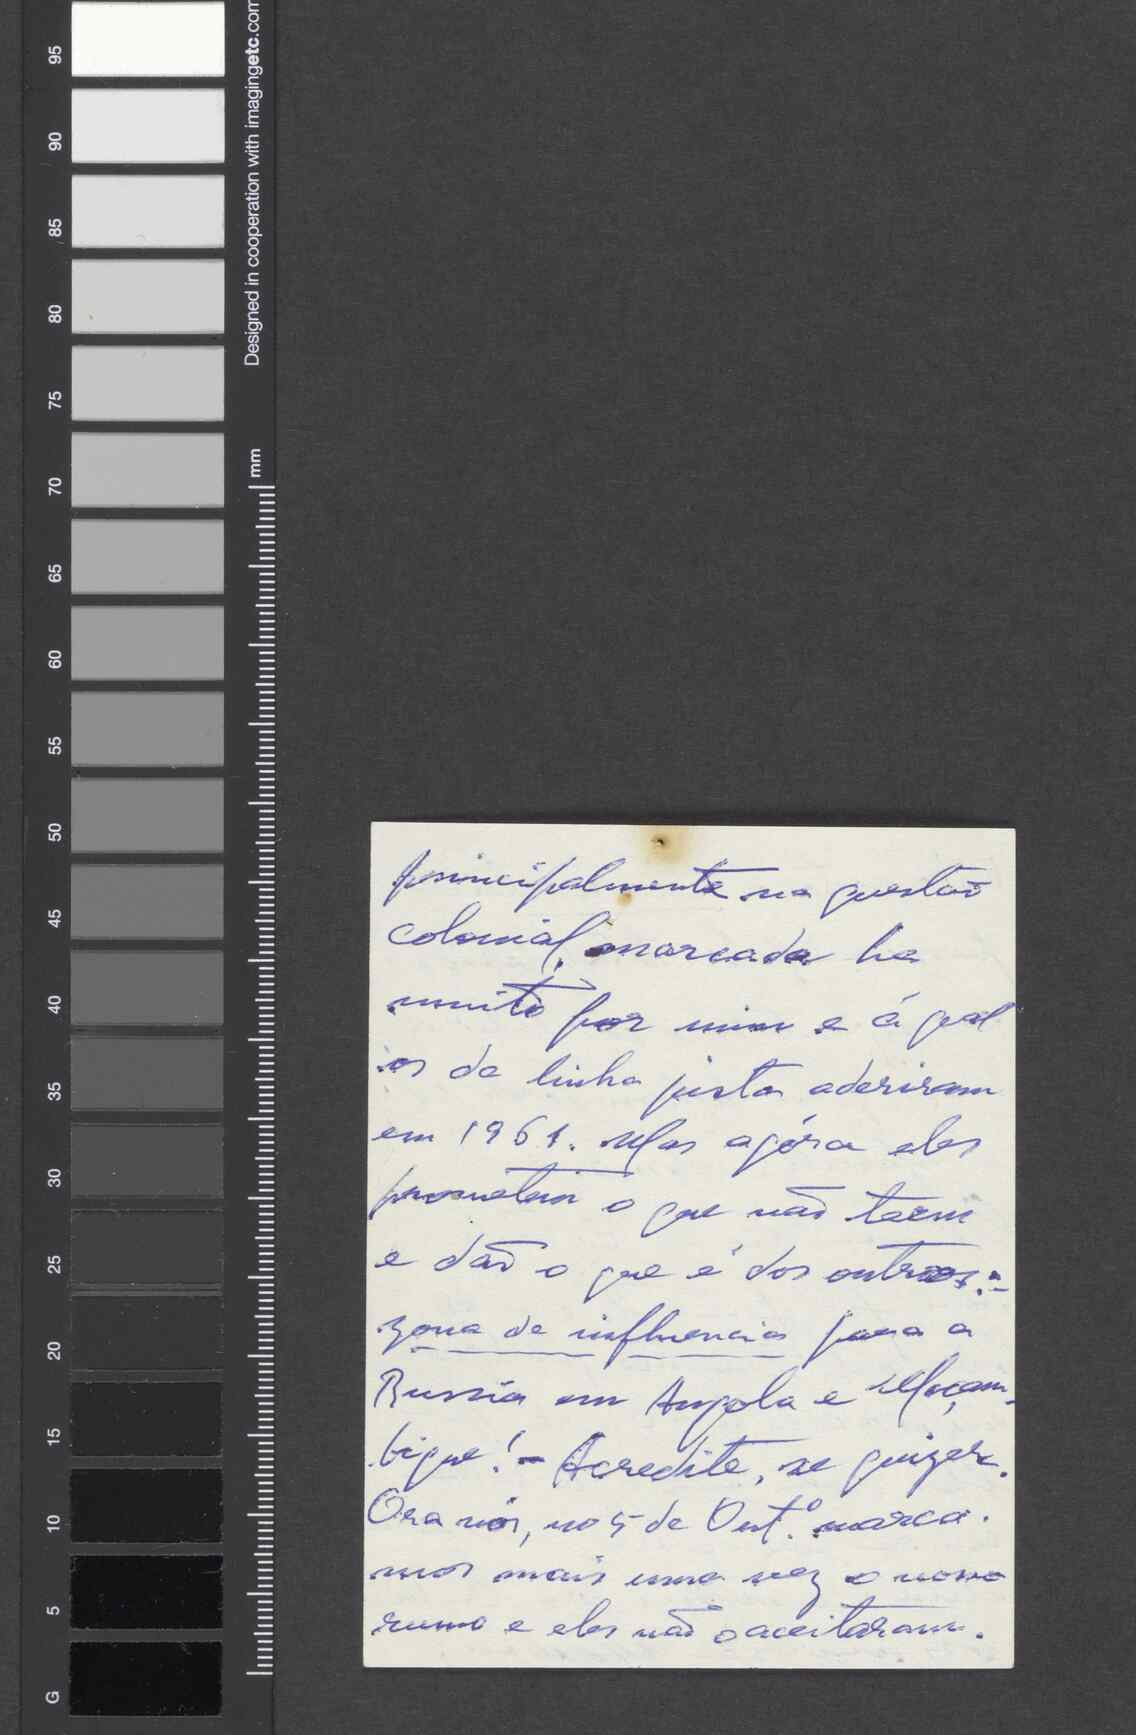 95
90
85
80
75
70
65
60
55
50
45
40
35
30
25
20
15
10
5
G
Designed in cooperation with imagingetc.com
mm
principalmente na questão
colonial, marcada ha
muito por mim e á qual
os da linha justa aderiram
em 1961. Mas agóra eles
prometem o que não teem
e dão o que é dos outros:-
zona de influencia para a
Russia em Angola e Moçam-
bique! - Acredite, se quizer.
Ora nós, no 5 de Out.º marca-
mos mais uma vez o nosso
rumo e eles não o aceitaram.